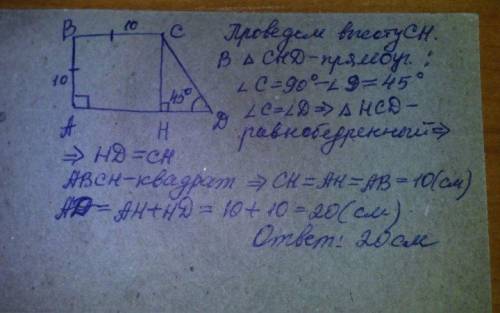 B 10 C
10
45°
A H D
Проведем высоту CH.
В △ CHD-прямоуг:
∠C=90°-∠D=45°
∠C=∠D⇒△HCD-
равнобедренный⇒
⇒ HD=CH
ABCH-квадрат ⇒ CH=AH=AB=10(см)
AD=AH+HD=10+10=20(см).
Ответ: 20см